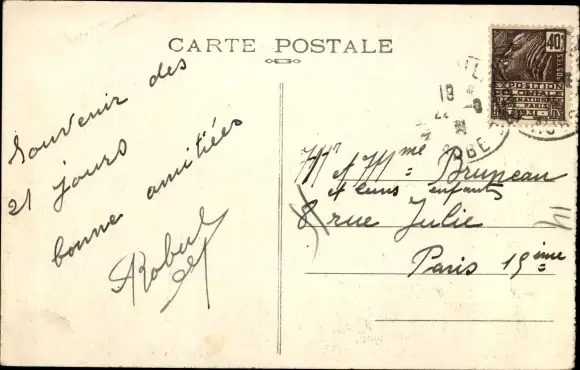 CARTE POSTALE
Souvenir des
21 jours
bonne amitiées
Robert
40c
POSTES
EXPOSITION
COLONIALE
INTERNATIONALE
PARIS
1931
19
Mr et Mme Bruneau
et leurs enfants
8 rue Julie
Paris 19ème